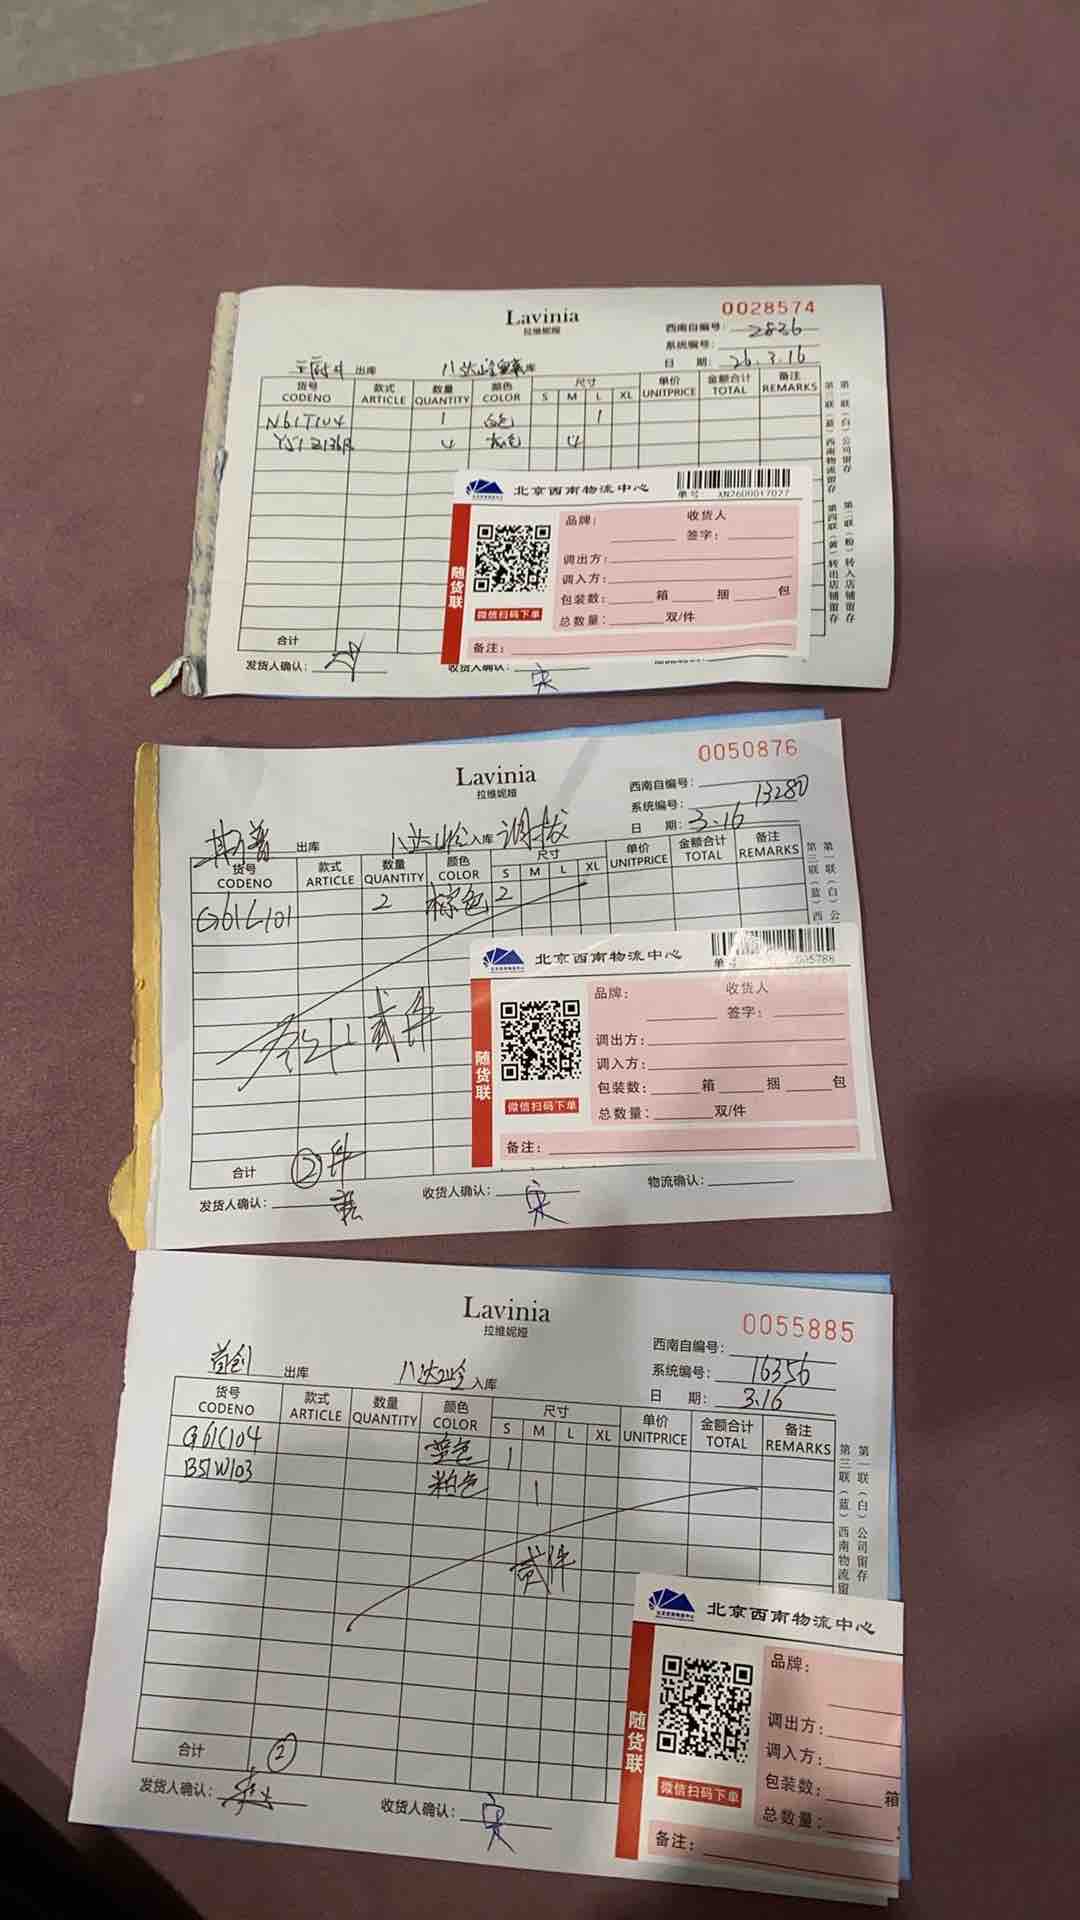 Lavinia
拉维妮娅
0028574
西南自编号: 2836
系统编号:
日 期: 26.3.16
出库 八达岭 库
货号 款式 数量 颜色 尺寸 单价 金额合计 备注
CODENO ARTICLE QUANTITY COLOR S M L XL UNITPRICE TOTAL REMARKS
N61T104 1 白色 1
4 灰色 4
第一联(白)公司留存 第二联(粉)转入店铺留存
第三联(蓝)西南物流留存 第四联(黄)转出店铺留存
北京西南物流中心
单号 XN2600017027
品牌: 收货人
签字:
调出方:
调入方:
包装数: 箱 捆 包
总数量: 双/件
备注:
随货联
微信扫码下单
合计
发货人确认:
收货人确认: 宋
Lavinia
拉维妮娅
0050876
西南自编号:
系统编号: 13280
日 期: 3.16
出库 八达岭 入库 调拨
货号 款式 数量 颜色 尺寸 单价 金额合计 备注
CODENO ARTICLE QUANTITY COLOR S M L XL UNITPRICE TOTAL REMARKS
G61L101 2 棕色 2
贰件
第一联(白)公
第三联(蓝)西
北京西南物流中心
单号 005788
品牌: 收货人
签字:
调出方:
调入方:
包装数: 箱 捆 包
总数量: 双/件
备注:
随货联
微信扫码下单
合计 ②件
发货人确认:
收货人确认: 宋
物流确认:
Lavinia
拉维妮娅
0055885
西南自编号:
系统编号: 16356
日 期: 3.16
首创 出库 八达岭 入库
货号 款式 数量 颜色 尺寸 单价 金额合计 备注
CODENO ARTICLE QUANTITY COLOR S M L XL UNITPRICE TOTAL REMARKS
G61C104 蓝色 1
B51W103 粉色 1
贰件
第一联(白)公司留存
第三联(蓝)西南物流留
北京西南物流中心
品牌:
调出方:
调入方:
包装数: 箱
总数量:
备注:
随货联
微信扫码下单
合计 ②
发货人确认:
收货人确认: 宋